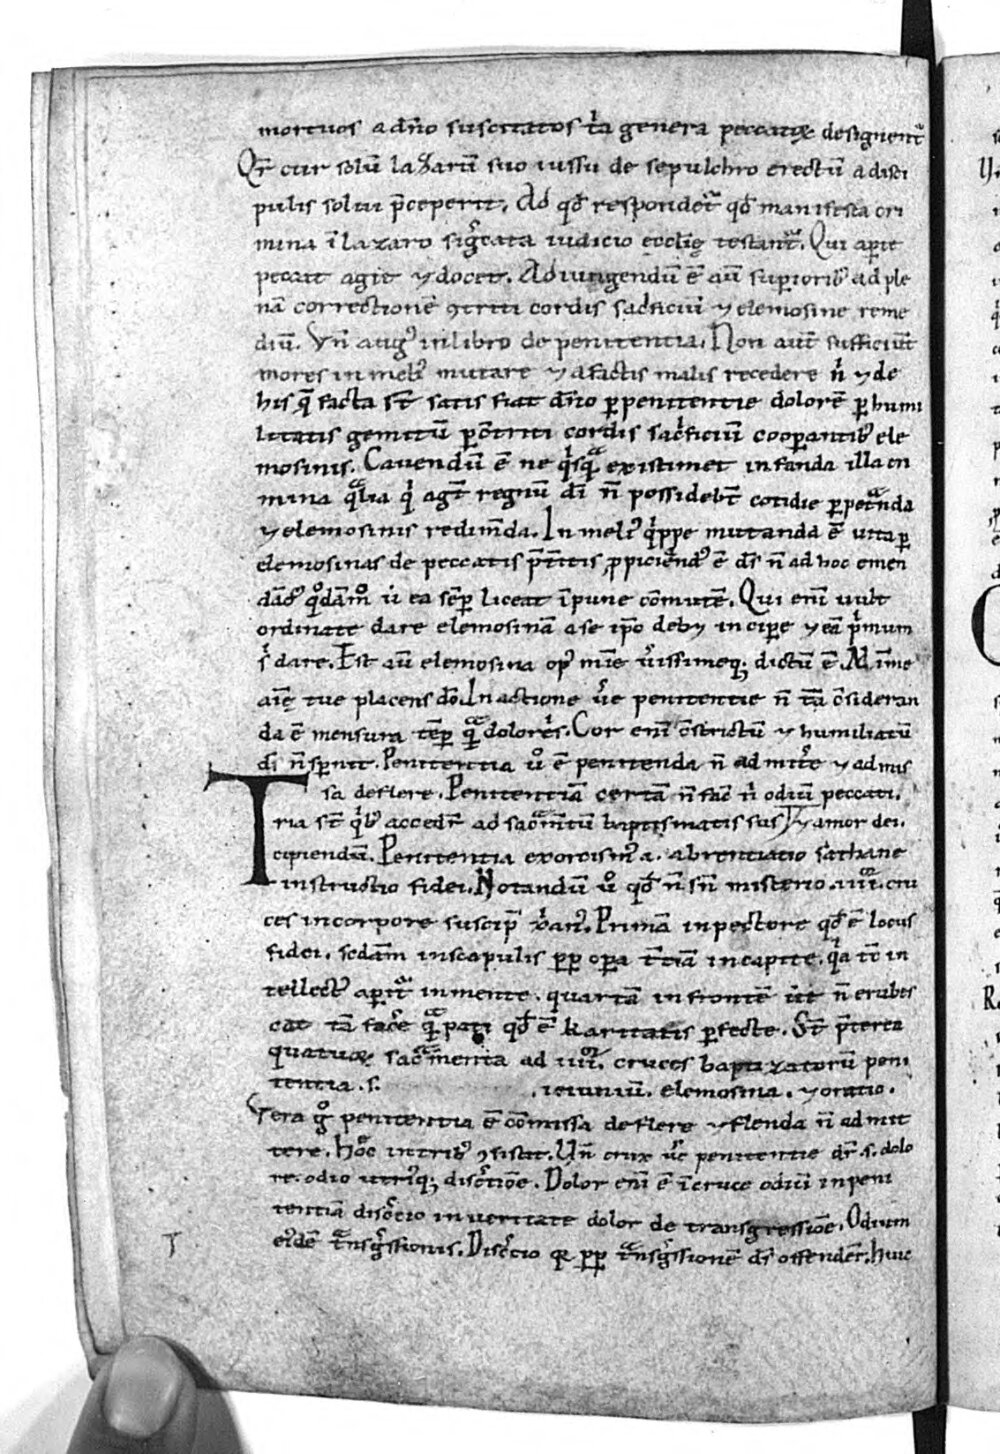 mortuos a dño suscitatos t̃a genera peccatoꝝ designent᷑
Qr̃ cur solũ lazarũ suo iussu de sepulchro erectũ a disci
pulis solui p̃ceperit. Ad qđ respondet᷑ qđ manifesta cri
mina ĩ lazaro sig̃cata iudicio eccłię testant᷑. Qui apte
peccat agit ⁊ docet. Adiungendũ ẽ aũ supiorib᷒ ad ple
nã correctionẽ ꝯtriti cordis sac̃ficiũ ⁊ elemosine reme
diũ. Vñ aug᷒ in libro de penitentia. Non aut̃ sufficiũt
mores in meli᷒ mutare ⁊ a factis malis recedere ñ ⁊ de
his q̃ facta st̃ satis fiat dño ꝑ penitentie dolorẽ ꝑ humi
litatis gemitũ ꝑ ꝯtriti cordis sac̃ficiũ cooꝑantib᷒ ele
mosinis. Cauendũ ẽ ne q̇sq̃ existimet infanda illa cri
mina q̃lia q̇ agt̃ regnũ dĩ ñ possidebt̃ cotidie ꝑpet̃nda
⁊ elemosinis redim̃da. In meli᷒ q̇ppe mutanda ẽ uita ꝑ
elemosinas de peccatis p̃t̃itis ꝓpiciend᷒ ẽ ds̃ ñ ad hoc emen
dãd᷒ q̊dãm̊ ù ea sẽꝑ liceat ĩpune cõmitẽ. Qui eñi uult
ordinate dare elemosinã a se ip̃o deb& incipe ⁊ eã p̃mum
s̃ dare. Est aũ elemosina op᷒ mĩe ũissimeq; dictũ ẽ. Mĩme
aĩę tue placens dõ. In actione ũe penitentie ñ tã ꝯsideran
da ẽ mensura tẽꝑ q̃ doloris. Cor eñi ꝯstrictũ ⁊ humiliatũ
ds̃ ñ spernit. Penitentia u̇ ẽ penitenda ñ admit̃e ⁊ admis
sa deflere. Penitentiã certã ñ fac̃ ñ odiũ peccati.
Tria st̃ q̇b᷒ accedit᷑ ad sac̃mtũ baptismatis sus ⁊ amor dei.
cipiendũ. Penitentia exorcism᷒ a. abrenciatio sathane
instructio fidei. Notandũ u̇ qđ ñ sñ misterio .iiii. cru
ces in corpore suscip̃ xp̃ian᷒. Primã in pectore qđ ẽ locus
fidei. sc̃dam in scapulis ꝓꝑ opa tt̃iã in capite. q̇a tc̃ in
tellect᷒ apit᷑ in mente. quartã in frontẽ ut ñ erubes
cat tã fac̃e q̃ pati qđ ẽ karitatis ꝑfecte. St̃ p̃terea
quatuoꝝ sac̃menta ad .iiii. cruces baptizatorũ peni
tentia .s. . ieiuniũ. elemosina. ⁊ oratio.
Vera g̊ penitentia ẽ cõmissa deflere ⁊ flenda ñ admit
tere. Hoc̃ in trib᷒ ꝯsistit. Uñ crux ũe penitentie dr̃ .s. dolo
re. odio utriq; disc̃tiõe. Dolor eñi ẽ ĩ cruce odiũ in peni
tentiã disc̃cio in ueritate dolor de transgressiõe. Odium
ei᷒dẽ t̃nsg̃ssionis. Disc̃cio qr ꝓꝑ t̃nsg̃ssionẽ ds̃ offendit᷑. huic